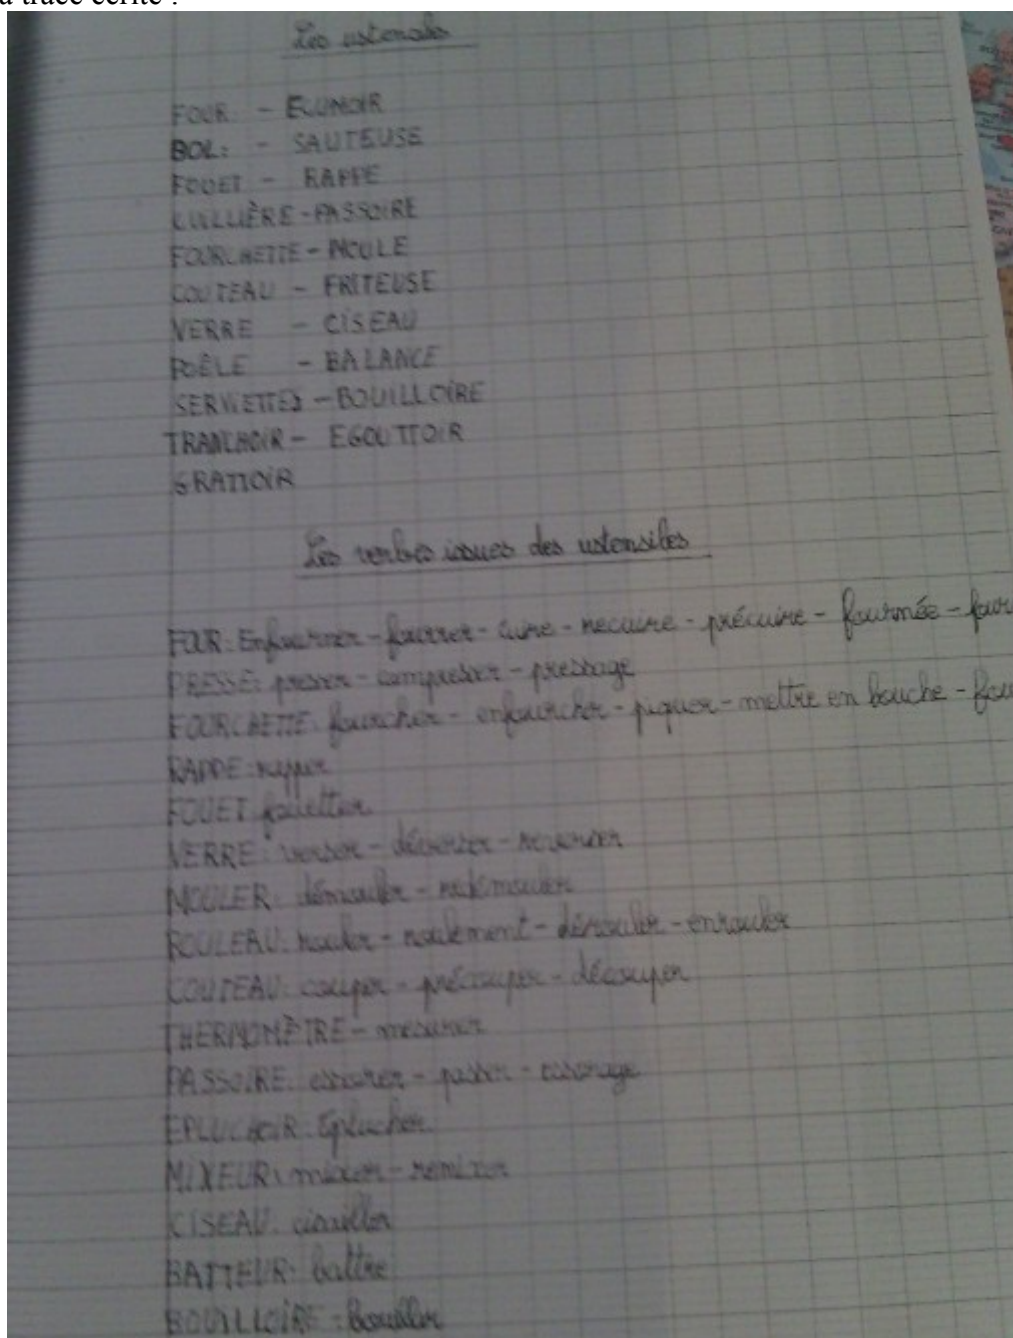 a trace écrite :
Les ustensiles
FOUR - ECUMOIR
BOL: - SAUTEUSE
FOUET - RAPPE
CUILLIÈRE - PASSOIRE
FOURCHETTE - MOULE
COUTEAU - FRITEUSE
VERRE - CISEAU
POÊLE - BALANCE
SERVIETTES - BOUILLOIRE
TRANCHOIR - EGOUTTOIR
GRATTOIR
Les verbes issues des ustensiles
FOUR: Enfourner - fourrer - cuire - recuire - précuire - fournée - four
PRESSE: presser - compresser - pressage
FOURCHETTE: fourcher - enfourcher - piquer - mettre en bouche - fou
RAPPE: rapper
FOUET: fouetter
VERRE: verser - déverser - reverser
MOULER: démouler - redémouler
ROULEAU: rouler - roulement - dérouler - enrouler
COUTEAU: couper - précouper - découper
THERMOMÈTRE - mesurer
PASSOIRE: essorer - passer - essorage
EPLUCHOIR: Eplucher
MIXEUR: mixer - remixer
CISEAU: cisailler
BATTEUR: battre
BOUILLOIRE: bouillir